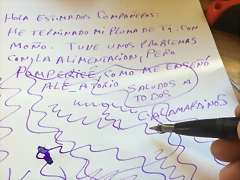 HOLA ESTIMADOS COMPAÑEROS:
HE TERMINADO MI PLUMA DE TI. CON
MOÑO. TUVE UNOS PROBLEMAS
CON LA ALIMENTACION, PERO
COMO ME ENSEÑÓ
ALEATORIO
SALUDOS A
TODOS
CALAMARDINOS